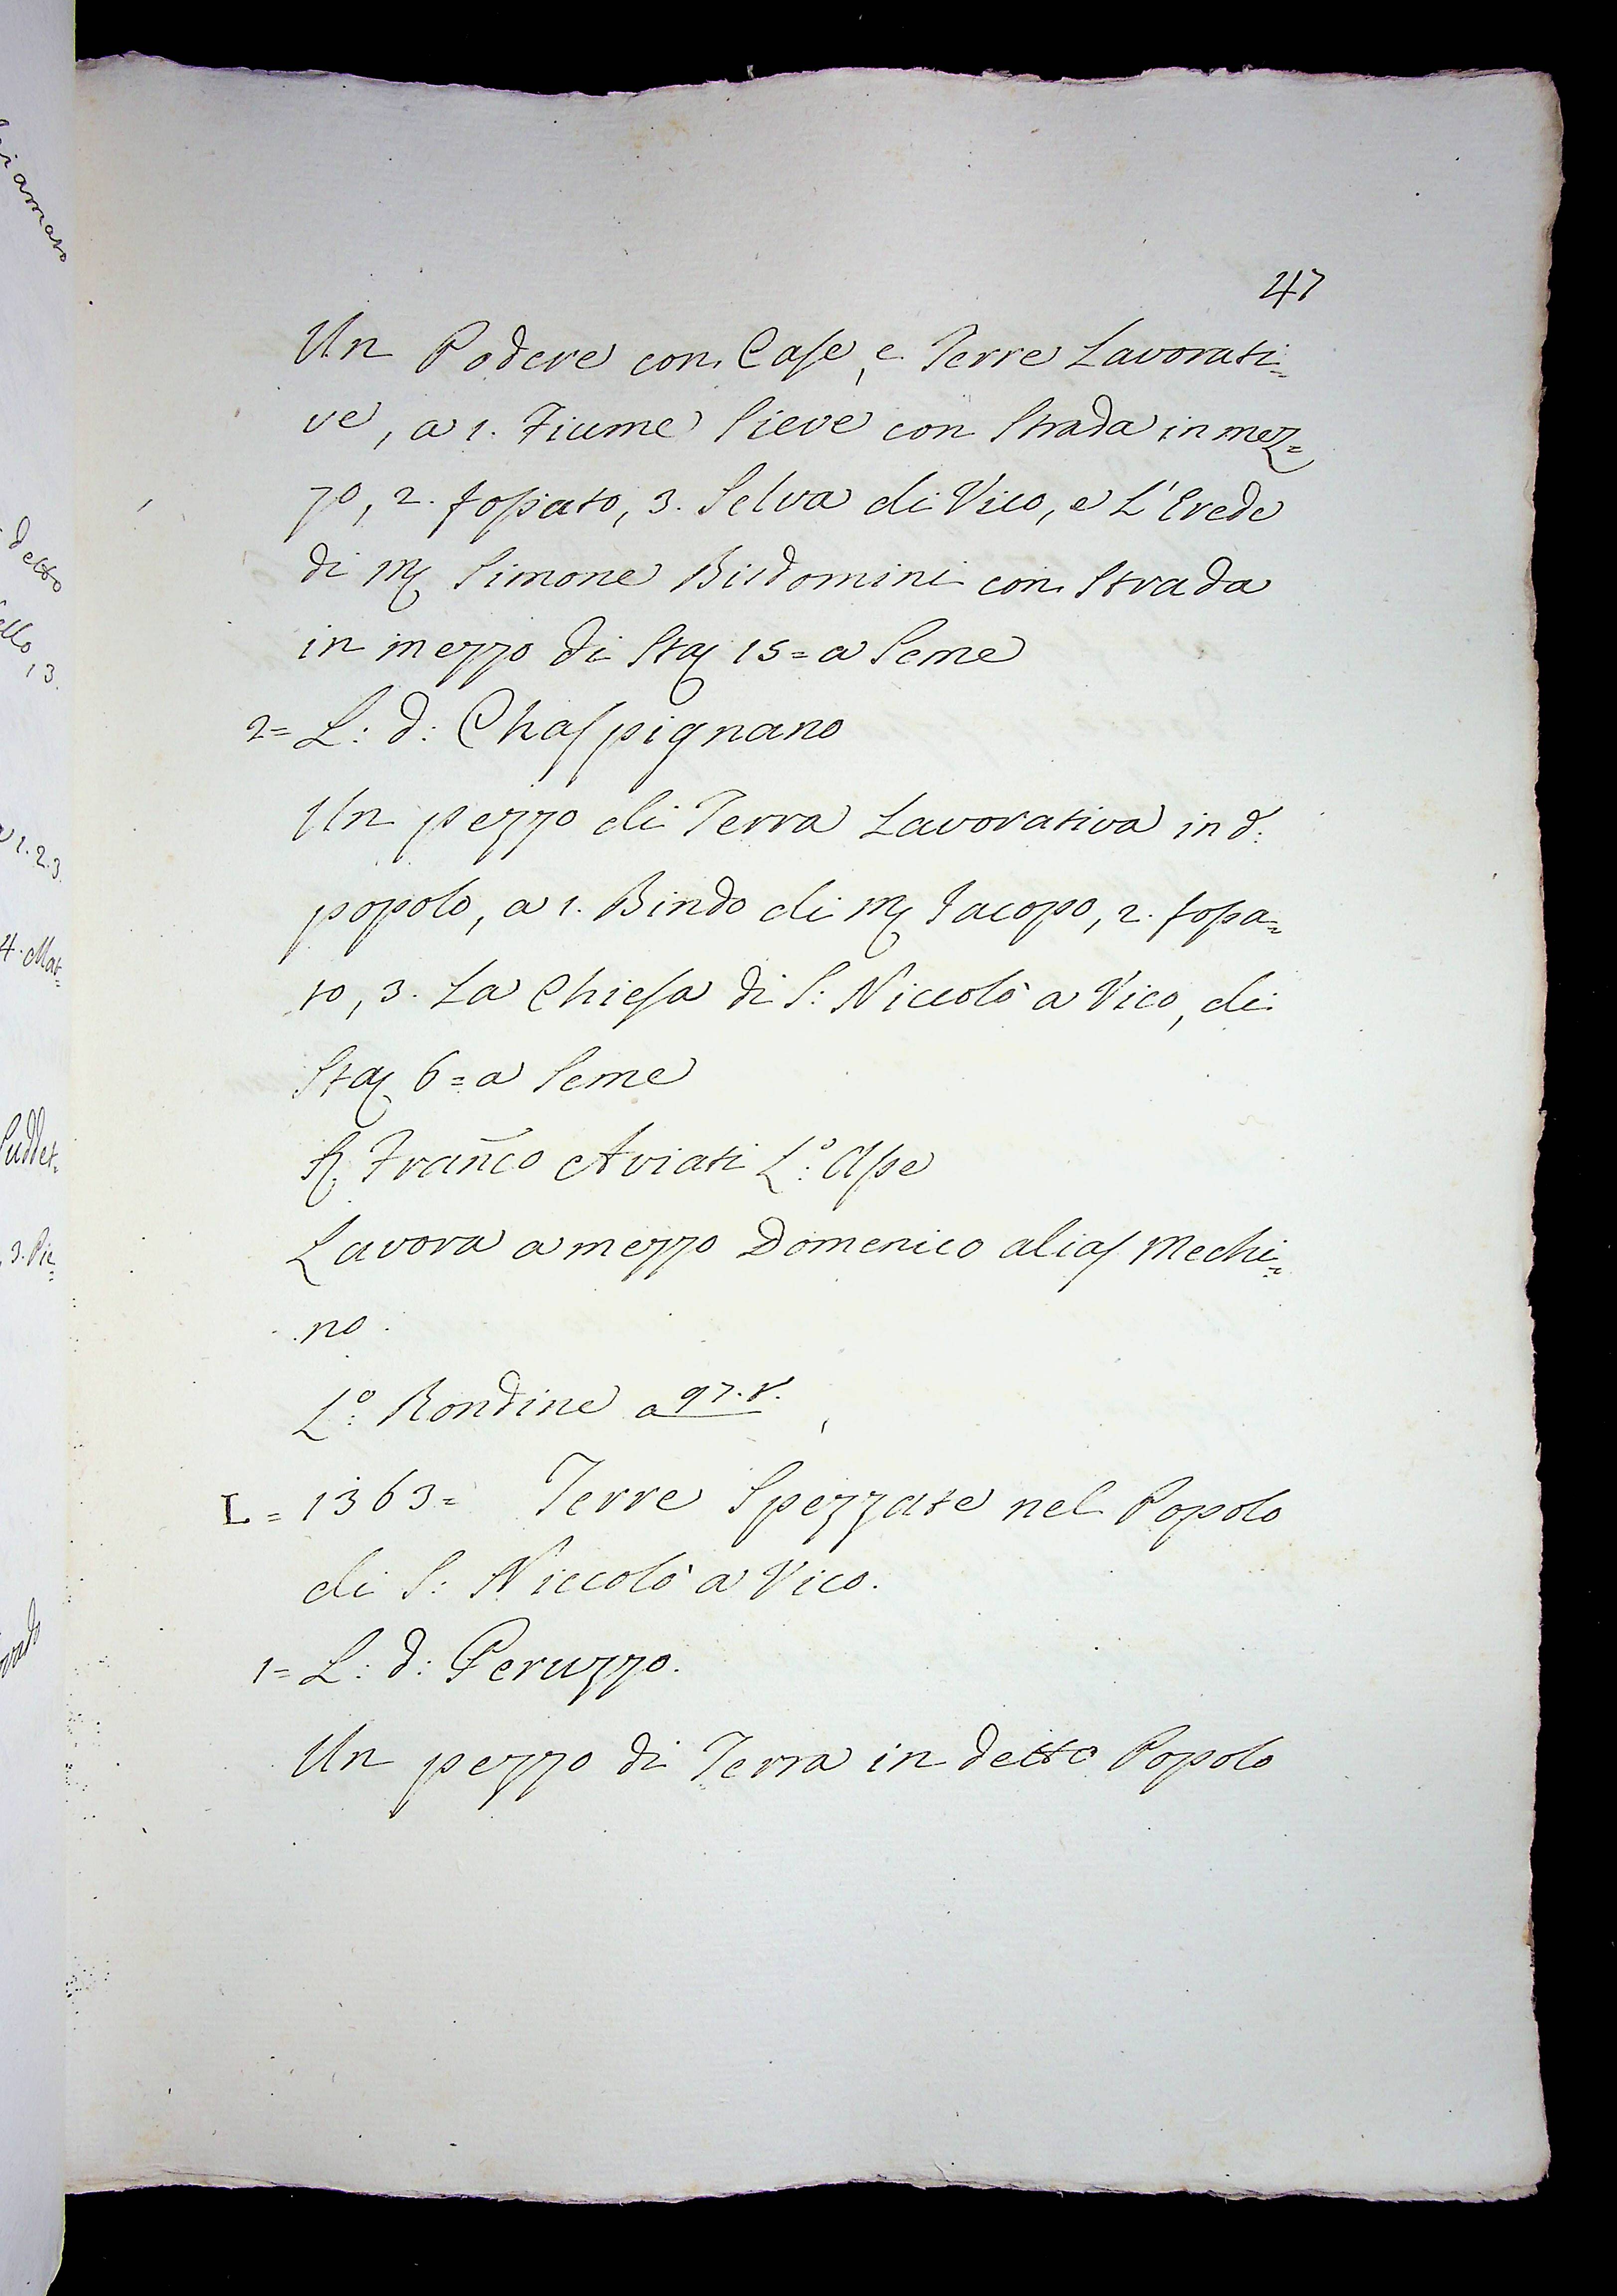 47
Un Podere con Case, e Terre Lavorati=
ve, a 1. Fiume Sieve con Strada in mez=
zo, 2. fossato, 3. Selva di Vico, e L'Erede
di M Simone Bisdomini con Strada
in mezzo di Sta 15= a Seme
2= L: d: Chaspignano
Un pezzo di Terra Lavorativa in d:
popolo, a 1. Bindo di M Jacopo, 2. fossa=
to, 3. La Chiesa di S: Niccolò a Vico, di
Sta 6= a Seme
Franco Aviati L:º Aspe
Lavora a mezzo Domenico alias Mechi=
no.
L:º Rondine a 97.
L= 1363= Terre Spezzate nel Popolo
di S: Niccolò a Vico.
1= L: d: Peruzzo.
Un pezzo di Terra in detto Popolo
detto
13.
1.2.3.
4. Mat=
Suddet=